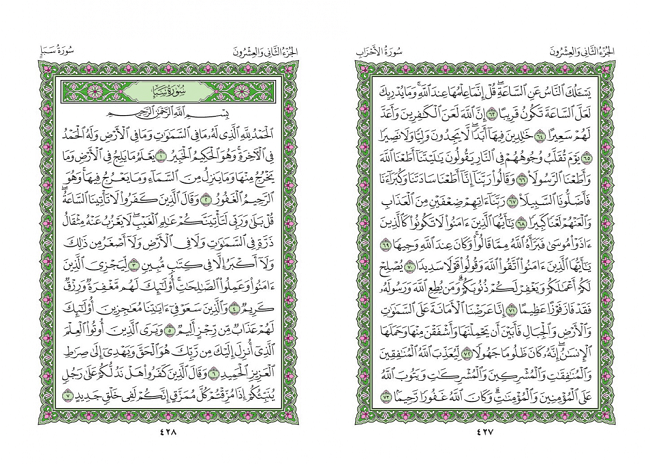 الجُزْءُ الثَّانِي وَالعِشْرُونَ سُورَةُ الأَحْزَابِ
يَسْـَٔلُكَ ٱلنَّاسُ عَنِ ٱلسَّاعَةِۖ قُلْ إِنَّمَا عِلْمُهَا عِندَ ٱللَّهِۚ وَمَا يُدْرِيكَ
لَعَلَّ ٱلسَّاعَةَ تَكُونُ قَرِيبًا ٦٣ إِنَّ ٱللَّهَ لَعَنَ ٱلْكَٰفِرِينَ وَأَعَدَّ
لَهُمْ سَعِيرًا ٦٤ خَٰلِدِينَ فِيهَآ أَبَدًاۖ لَّا يَجِدُونَ وَلِيًّا وَلَا نَصِيرًا
٦٥ يَوْمَ تُقَلَّبُ وُجُوهُهُمْ فِي ٱلنَّارِ يَقُولُونَ يَٰلَيْتَنَآ أَطَعْنَا ٱللَّهَ
وَأَطَعْنَا ٱلرَّسُولَا۠ ٦٦ وَقَالُوا۟ رَبَّنَآ إِنَّآ أَطَعْنَا سَادَتَنَا وَكُبَرَآءَنَا
فَأَضَلُّونَا ٱلسَّبِيلَا۠ ٦٧ رَبَّنَآ ءَاتِهِمْ ضِعْفَيْنِ مِنَ ٱلْعَذَابِ
وَٱلْعَنْهُمْ لَعْنًا كَبِيرًا ٦٨ يَٰٓأَيُّهَا ٱلَّذِينَ ءَامَنُوا۟ لَا تَكُونُوا۟ كَٱلَّذِينَ
ءَاذَوْا۟ مُوسَىٰ فَبَرَّأَهُ ٱللَّهُ مِمَّا قَالُوا۟ۚ وَكَانَ عِندَ ٱللَّهِ وَجِيهًا ٦٩
يَٰٓأَيُّهَا ٱلَّذِينَ ءَامَنُوا۟ ٱتَّقُوا۟ ٱللَّهَ وَقُولُوا۟ قَوْلًا سَدِيدًا ٧٠ يُصْلِحْ
لَكُمْ أَعْمَٰلَكُمْ وَيَغْفِرْ لَكُمْ ذُنُوبَكُمْۗ وَمَن يُطِعِ ٱللَّهَ وَرَسُولَهُۥ
فَقَدْ فَازَ فَوْزًا عَظِيمًا ٧١ إِنَّا عَرَضْنَا ٱلْأَمَانَةَ عَلَى ٱلسَّمَٰوَٰتِ
وَٱلْأَرْضِ وَٱلْجِبَالِ فَأَبَيْنَ أَن يَحْمِلْنَهَا وَأَشْفَقْنَ مِنْهَا وَحَمَلَهَا
ٱلْإِنسَٰنُۖ إِنَّهُۥ كَانَ ظَلُومًا جَهُولًا ٧٢ لِّيُعَذِّبَ ٱللَّهُ ٱلْمُنَٰفِقِينَ
وَٱلْمُنَٰفِقَٰتِ وَٱلْمُشْرِكِينَ وَٱلْمُشْرِكَٰتِ وَيَتُوبَ ٱللَّهُ
عَلَى ٱلْمُؤْمِنِينَ وَٱلْمُؤْمِنَٰتِۗ وَكَانَ ٱللَّهُ غَفُورًا رَّحِيمًا ٧٣
٤٢٧
الجُزْءُ الثَّانِي وَالعِشْرُونَ سُورَةُ سَبَإٍ
سُورَةُ سَبَإٍ
بِسْمِ ٱللَّهِ ٱلرَّحْمَٰنِ ٱلرَّحِيمِ
ٱلْحَمْدُ لِلَّهِ ٱلَّذِي لَهُۥ مَا فِي ٱلسَّمَٰوَٰتِ وَمَا فِي ٱلْأَرْضِ وَلَهُ ٱلْحَمْدُ
فِي ٱلْأٓخِرَةِۚ وَهُوَ ٱلْحَكِيمُ ٱلْخَبِيرُ ١ يَعْلَمُ مَا يَلِجُ فِي ٱلْأَرْضِ وَمَا
يَخْرُجُ مِنْهَا وَمَا يَنزِلُ مِنَ ٱلسَّمَآءِ وَمَا يَعْرُجُ فِيهَاۚ وَهُوَ
ٱلرَّحِيمُ ٱلْغَفُورُ ٢ وَقَالَ ٱلَّذِينَ كَفَرُوا۟ لَا تَأْتِينَا ٱلسَّاعَةُۖ
قُلْ بَلَىٰ وَرَبِّي لَتَأْتِيَنَّكُمْ عَٰلِمِ ٱلْغَيْبِۖ لَا يَعْزُبُ عَنْهُ مِثْقَالُ
ذَرَّةٍ فِي ٱلسَّمَٰوَٰتِ وَلَا فِي ٱلْأَرْضِ وَلَآ أَصْغَرُ مِن ذَٰلِكَ
وَلَآ أَكْبَرُ إِلَّا فِي كِتَٰبٍ مُّبِينٍ ٣ لِّيَجْزِيَ ٱلَّذِينَ
ءَامَنُوا۟ وَعَمِلُوا۟ ٱلصَّٰلِحَٰتِۚ أُو۟لَٰٓئِكَ لَهُم مَّغْفِرَةٌ وَرِزْقٌ
كَرِيمٌ ٤ وَٱلَّذِينَ سَعَوْ فِيٓ ءَايَٰتِنَا مُعَٰجِزِينَ أُو۟لَٰٓئِكَ
لَهُمْ عَذَابٌ مِّن رِّجْزٍ أَلِيمٌ ٥ وَيَرَى ٱلَّذِينَ أُوتُوا۟ ٱلْعِلْمَ
ٱلَّذِيٓ أُنزِلَ إِلَيْكَ مِن رَّبِّكَ هُوَ ٱلْحَقَّ وَيَهْدِيٓ إِلَىٰ صِرَٰطِ
ٱلْعَزِيزِ ٱلْحَمِيدِ ٦ وَقَالَ ٱلَّذِينَ كَفَرُوا۟ هَلْ نَدُلُّكُمْ عَلَىٰ رَجُلٍ
يُنَبِّئُكُمْ إِذَا مُزِّقْتُمْ كُلَّ مُمَزَّقٍ إِنَّكُمْ لَفِي خَلْقٍ جَدِيدٍ ٧
٤٢٨